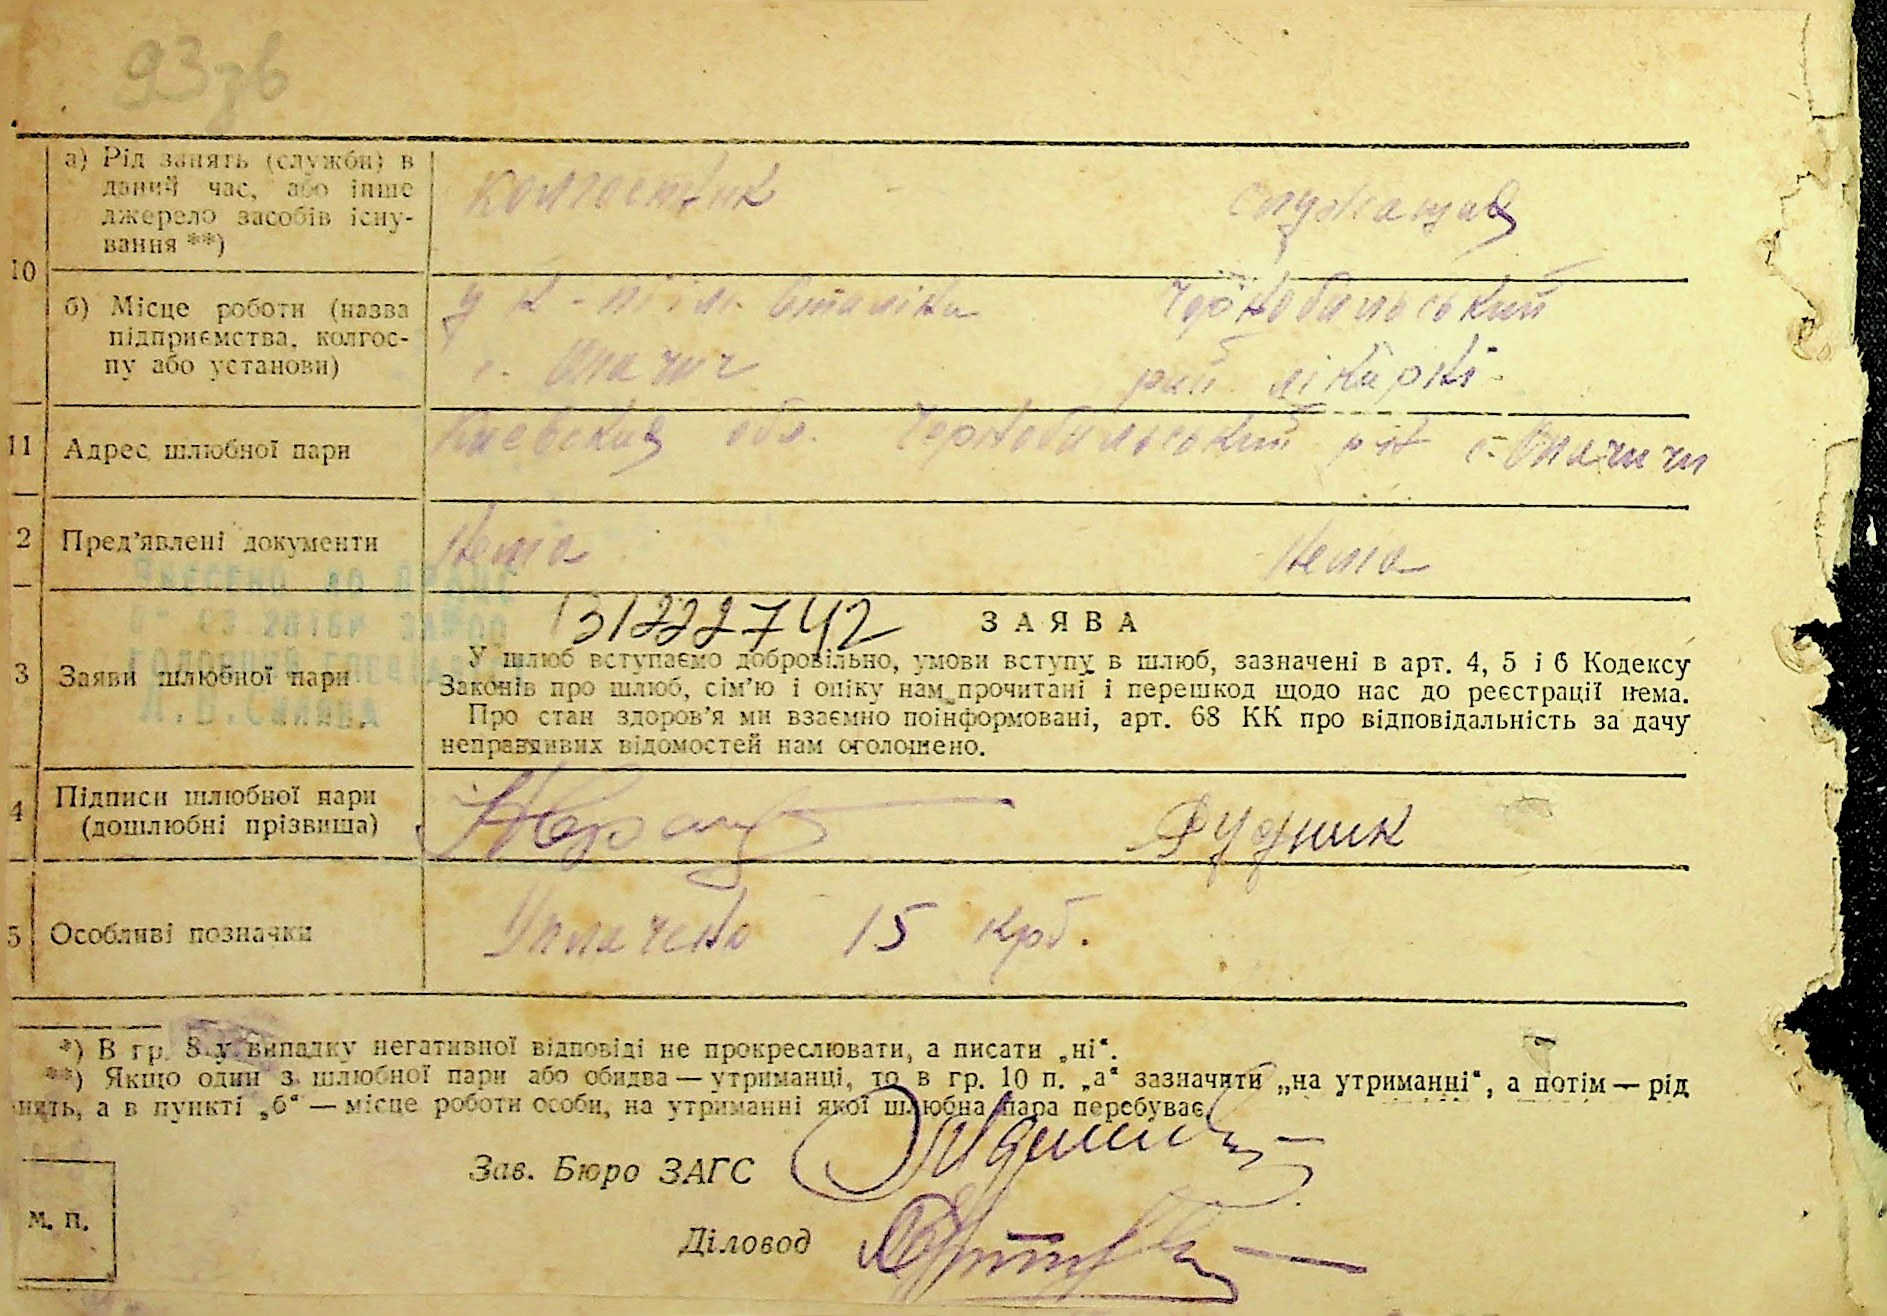 93зв
а) Рід занять (служби) в
даний час, або інше
джерело засобів існу-
вання **)
колгоспник
служащая
10
б) Місце роботи (назва
підприємства, колгос-
пу або установи)
у к-пі ім. Сталіна
с. Опачич
Чорнобильський
рай. лікарні
11
Адрес шлюбної пари
Киевская обл. Чорнобильський р-н с. Опачичи
2
Пред'явлені документи
Нема
Нема
Внесено до ДРАЦС
3
Заяви шлюбної пари
31222742
ЗАЯВА
У шлюб вступаємо добровільно, умови вступу в шлюб, зазначені в арт. 4, 5 і 6 Кодексу
Законів про шлюб, сім'ю і опіку нам прочитані і перешкод щодо нас до реєстрації нема.
Про стан здоров'я ми взаємно поінформовані, арт. 68 КК про відповідальність за дачу
неправдивих відомостей нам оголошено.
4
Підписи шлюбної пари
(дошлюбні прізвища)
Рудник
5
Особливі позначки
Уплачено 15 крб.
*) В гр. 8 у випадку негативної відповіді не прокреслювати, а писати „ні“.
**) Якщо один з шлюбної пари або обидва — утриманці, то в гр. 10 п. „а“ зазначити „на утриманні“, а потім — рід
нять, а в пункті „б“ — місце роботи особи, на утриманні якої шлюбна пара перебуває.
Зав. Бюро ЗАГС
Діловод
м. п.